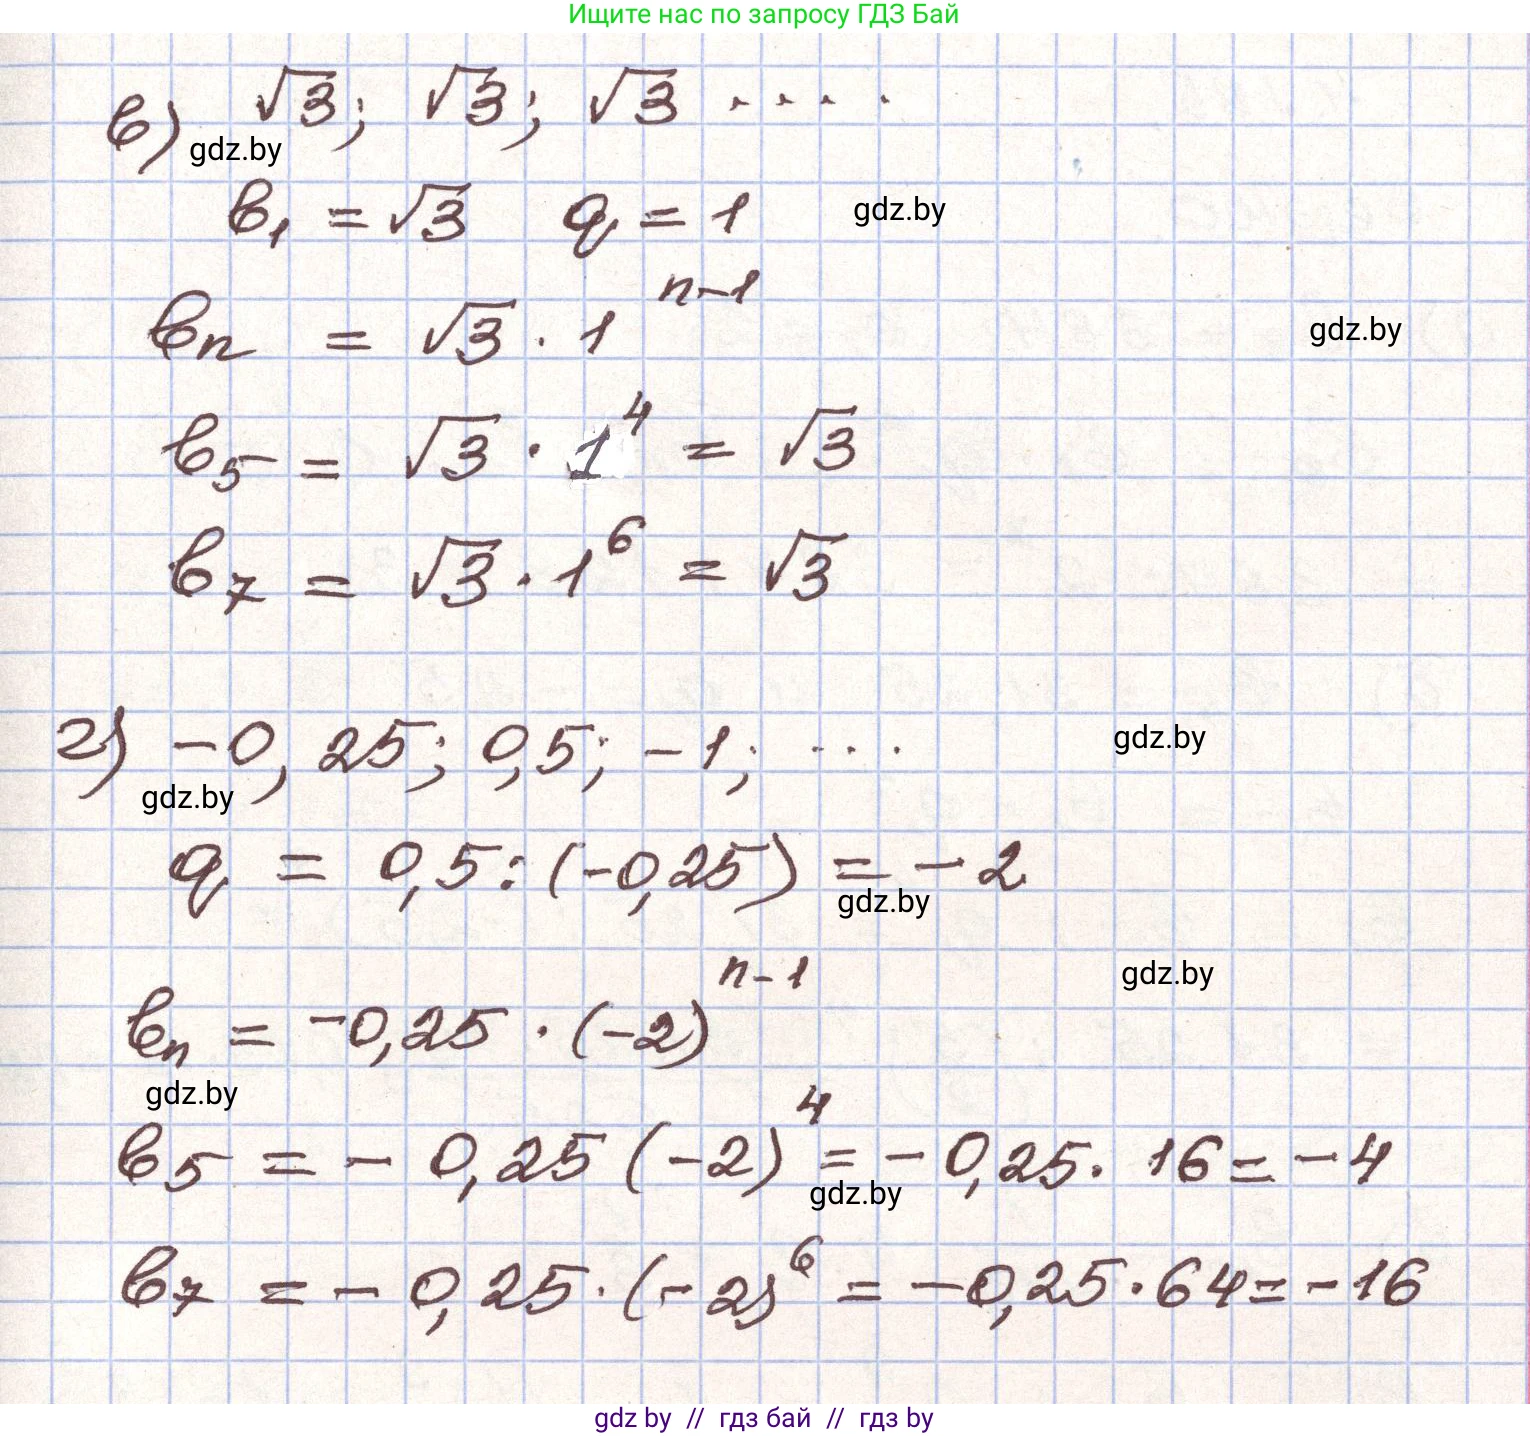 Ищите нас по запросу ГДЗ Бай
в) √3; √3; √3 ....
gdz.by
b₁ = √3 q = 1 gdz.by
bₙ = √3 · 1ⁿ⁻¹
gdz.by
b₅ = √3 · 1⁴ = √3
b₇ = √3 · 1⁶ = √3
г) -0,25; 0,5; -1; ...
gdz.by
gdz.by
q = 0,5 : (-0,25) = -2
gdz.by
bₙ = -0,25 · (-2)ⁿ⁻¹
gdz.by
gdz.by
b₅ = -0,25 (-2)⁴ = -0,25 · 16 = -4
gdz.by
b₇ = -0,25 · (-2)⁶ = -0,25 · 64 = -16
gdz by // гдз бай // гдз by